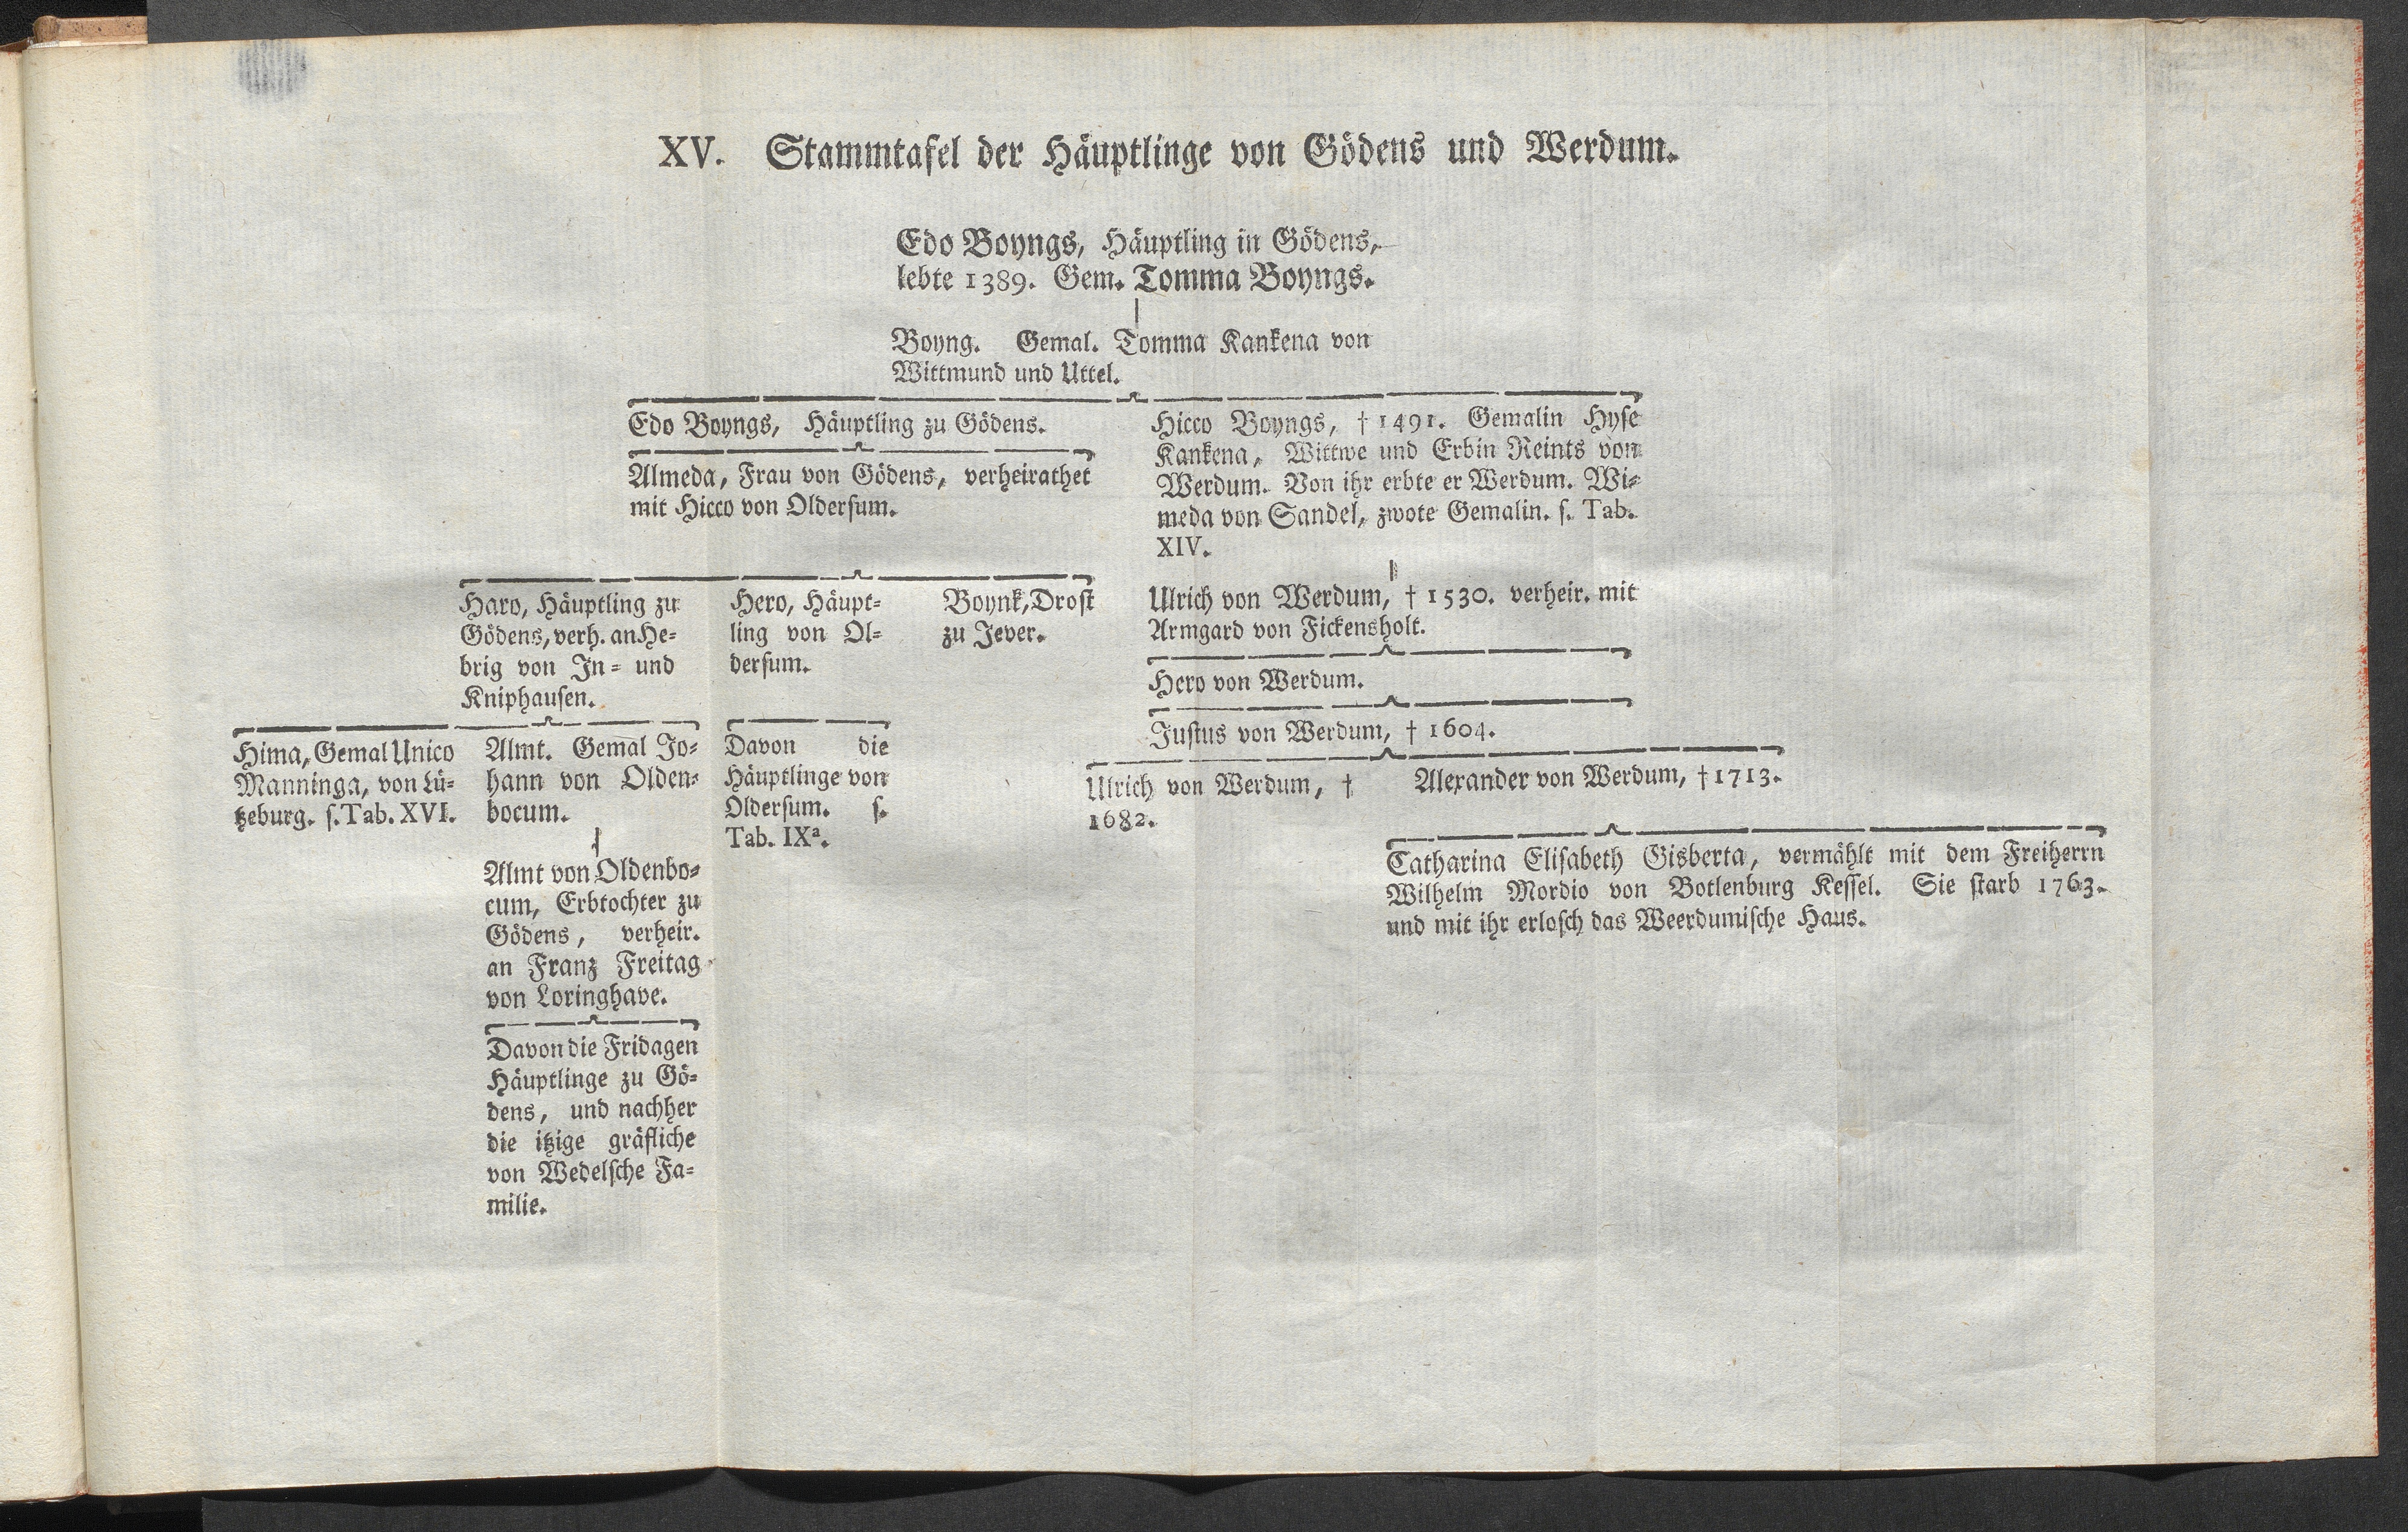 XV. Stammtafel der Häuptlinge von Gödens und Werdum.
Edo Boyngs, Häuptling in Gödens,
lebte 1389. Gem. Tomma Boyngs.
Boyng. Gemal. Tomma Kankena von
Wittmund und Uttel.
Edo Boyngs, Häuptling zu Gödens.
Almeda, Frau von Gödens, verheirathet
mit Hicco von Oldersum.
Hicco Boyngs, † 1491. Gemalin Hyse
Kankena, Wittwe und Erbin Reints von
Werdum. Von ihr erbte er Werdum. Wi=
meda von Sandel, zwote Gemalin. s. Tab.
XIV.
Haro, Häuptling zu
Gödens, verh. an He=
brig von In= und
Kniphausen.
Hero, Häupt=
ling von Ol=
dersum.
Boynk, Drost
zu Jever.
Ulrich von Werdum, † 1530. verheir. mit
Armgard von Fickensholt.
Hero von Werdum.
Justus von Werdum, † 1604.
Hima, Gemal Unico
Manninga, von Lü=
tzeburg. s. Tab. XVI.
Almt. Gemal Jo=
hann von Olden=
bocum.
Davon die
Häuptlinge von
Oldersum. s.
Tab. IXª.
Ulrich von Werdum, †
1682.
Alexander von Werdum, † 1713.
Almt von Oldenbo=
cum, Erbtochter zu
Gödens, verheir.
an Franz Freitag
von Loringhave.
Catharina Elisabeth Gisberta, vermählt mit dem Freiherrn
Wilhelm Mordio von Botlenburg Kessel. Sie starb 1763.
und mit ihr erlosch das Weerdumische Haus.
Davon die Fridagen
Häuptlinge zu Gö=
dens, und nachher
die itzige gräfliche
von Wedelsche Fa=
milie.